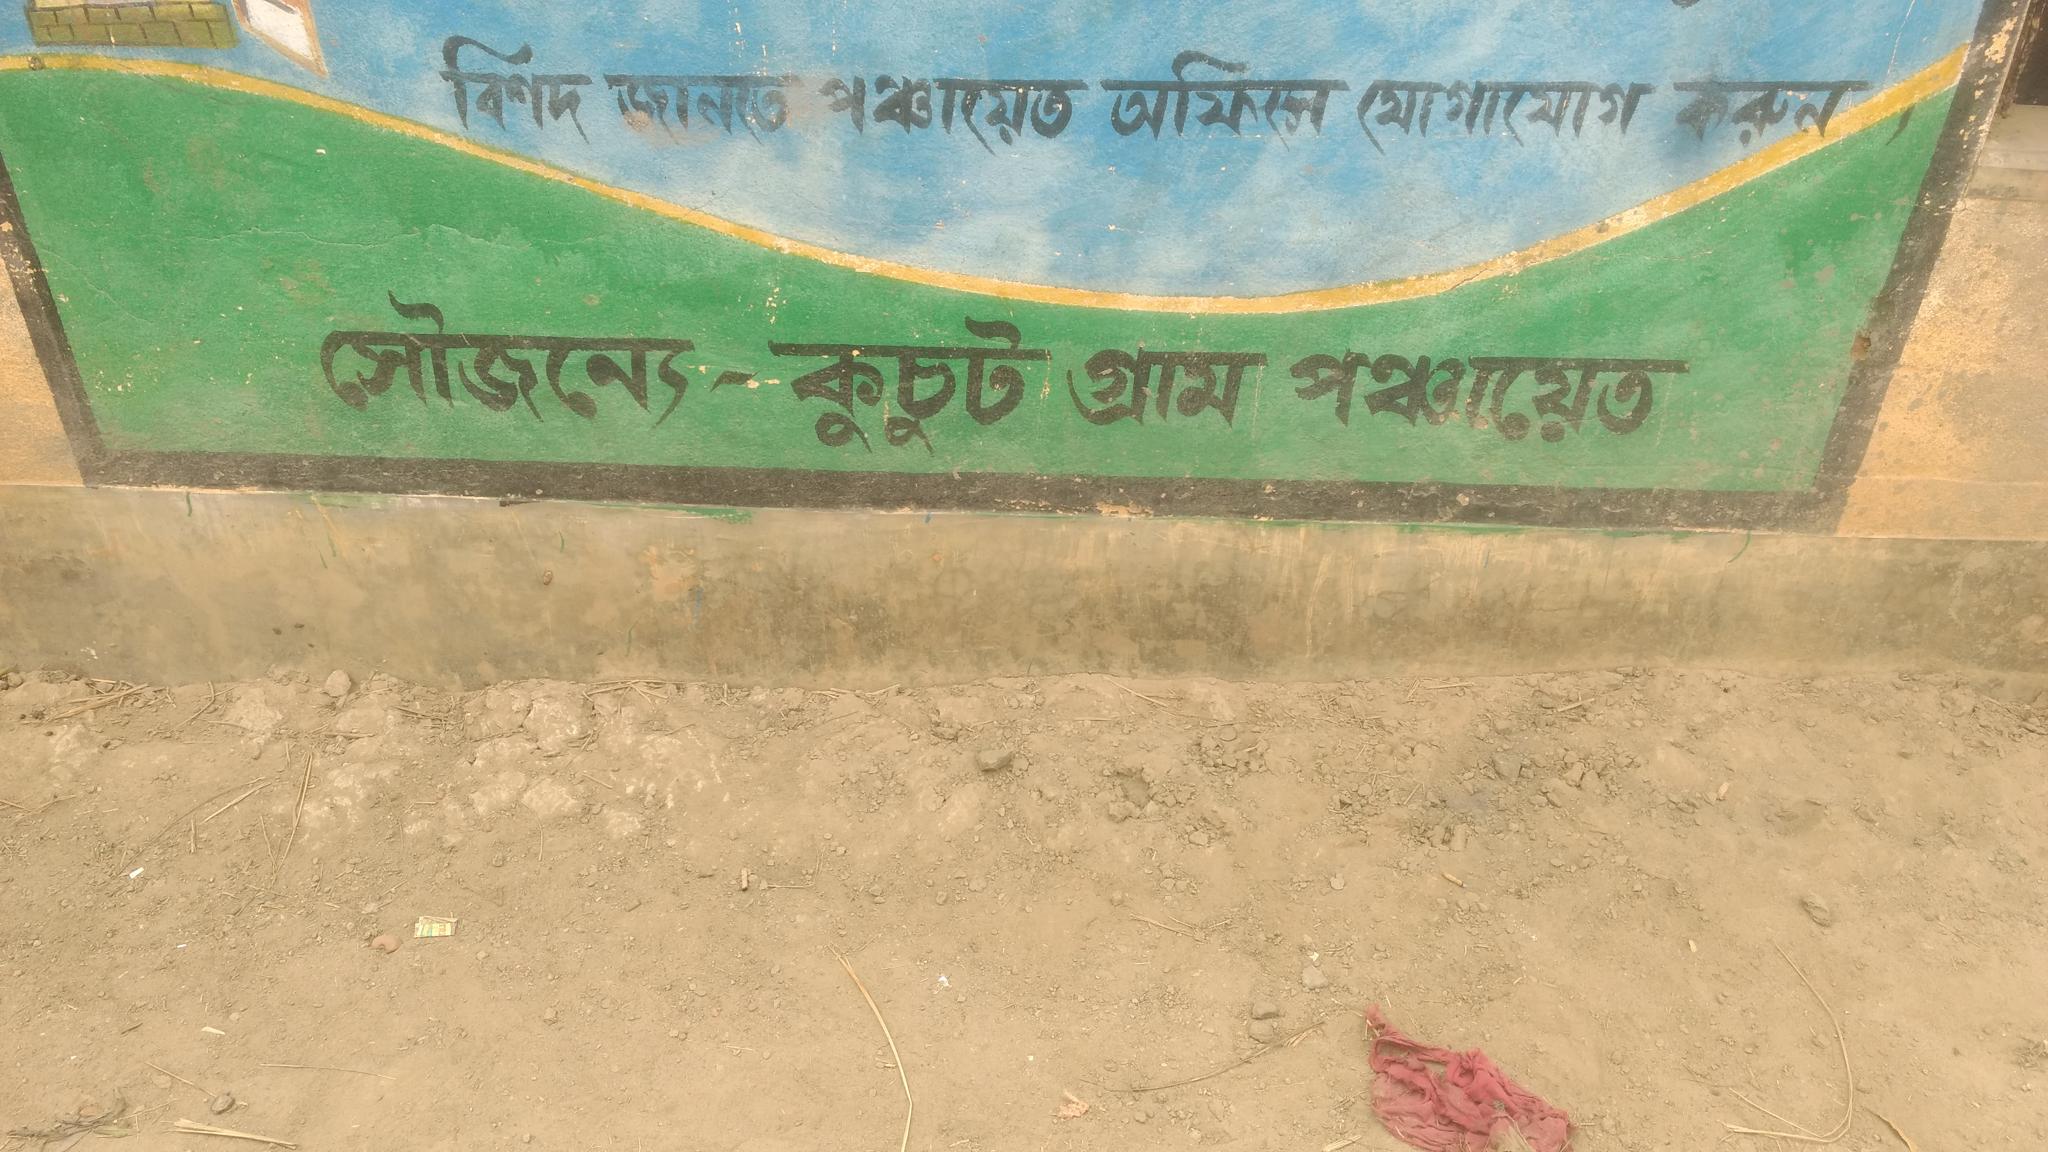 বিশদ জানতে পঞ্চায়েত অফিসে যোগাযোগ করুন।
সৌজন্যে - কুচুট গ্রাম পঞ্চায়েত